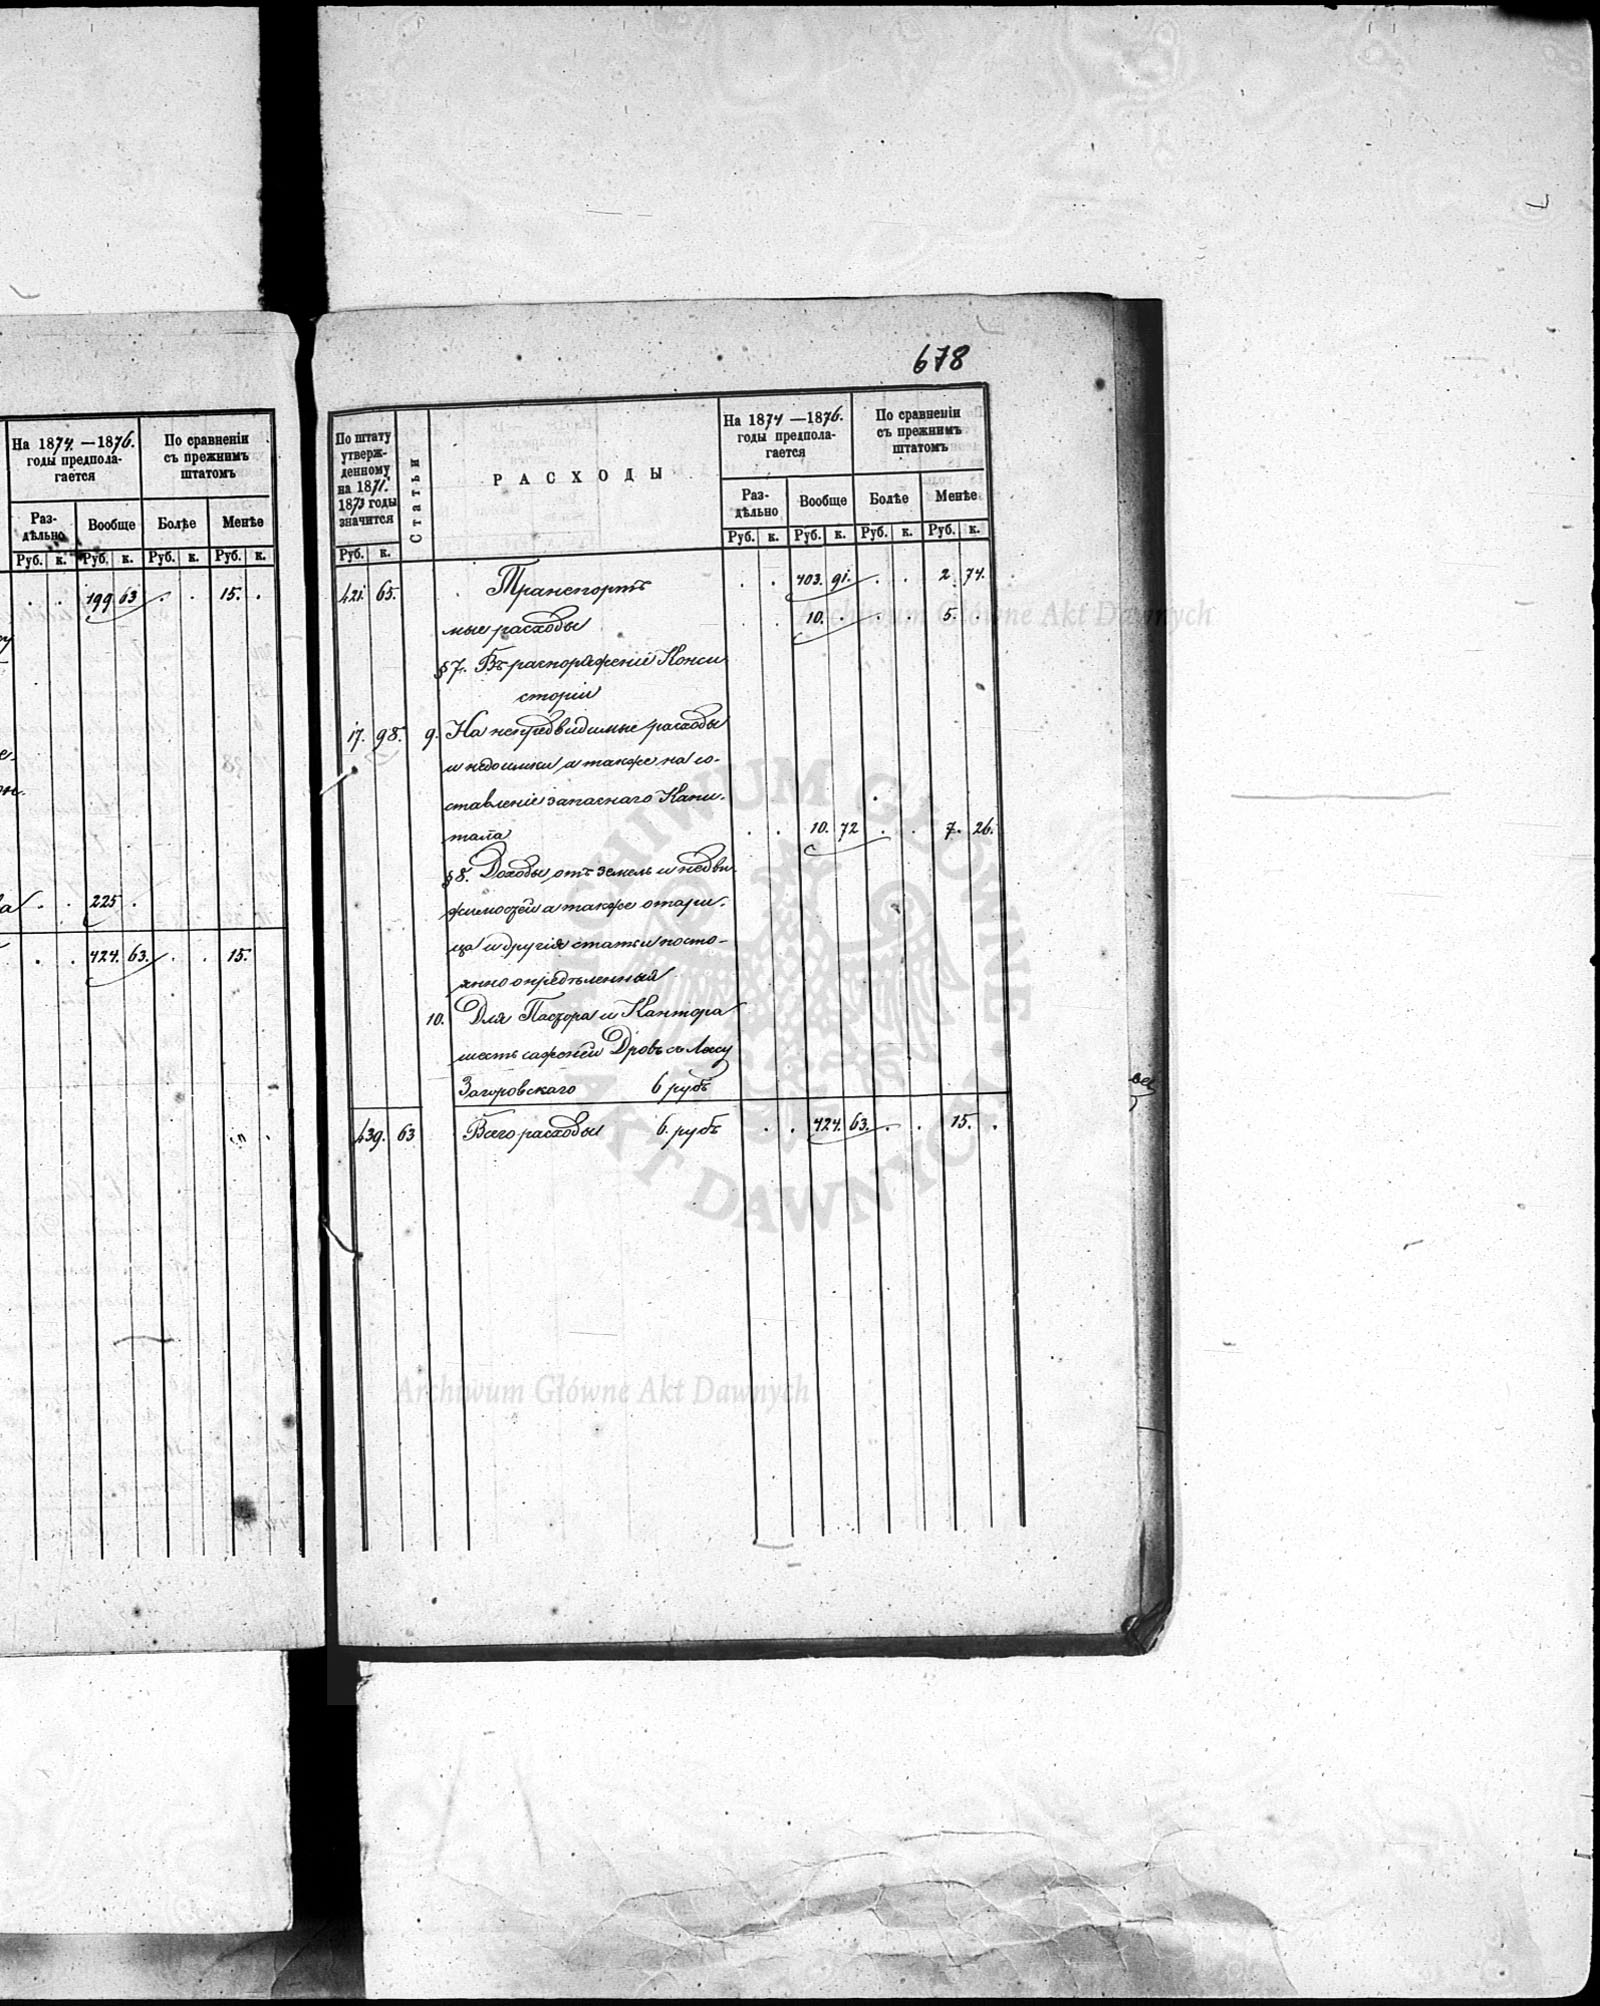 678
На 1874. —1876.
годы предпола-
гается
По сравненіи
съ прежнимъ
штатомъ
Раз-
дѣльно
Вообще
Болѣе
Менѣе
Руб. к. Руб. к. Руб. к. Руб. к.
. . 199 63 . . 15. .
. . 225 .
. . 424. 63. . . 15.
По штату
утверж-
денному
на 1871.
1873 годы
значится
Статьи
РАСХОДЫ
На 1874 —1876.
годы предпола-
гается
По сравненіи
съ прежнимъ
штатомъ
Раз-
дѣльно
Вообще
Болѣе
Менѣе
Руб. к.
Руб. к. Руб. к. Руб. к. Руб. к.
421. 65. Транспортъ . . 403. 91. . . 2. 74.
мые расходы . . 10. . . . 5. .
§ 7. Въ распоряженіе Конси
сторіи
17. 98. 9. На непредвидимые расходы
и недоимки, а также на со-
ставленіе запаснаго Капи-
тала . . 10. 72 . . 7. 26.
§ 8. Доходы отъ земель и недви
жимостей а также
ца и другія статьи посто-
янно опредѣленныя
10. Для Пастора и Кантора
шесть саженей Дровъ съ Лесу
Загоровскаго 6 рубъ
439. 63 Всего расходы 6. рубъ . . 424. 63. . . 15. .
Archiwum Główne Akt Dawnych
ARCHIWUM GŁÓWNE AKT DAWNYCH
Archiwum Główne Akt Dawnych